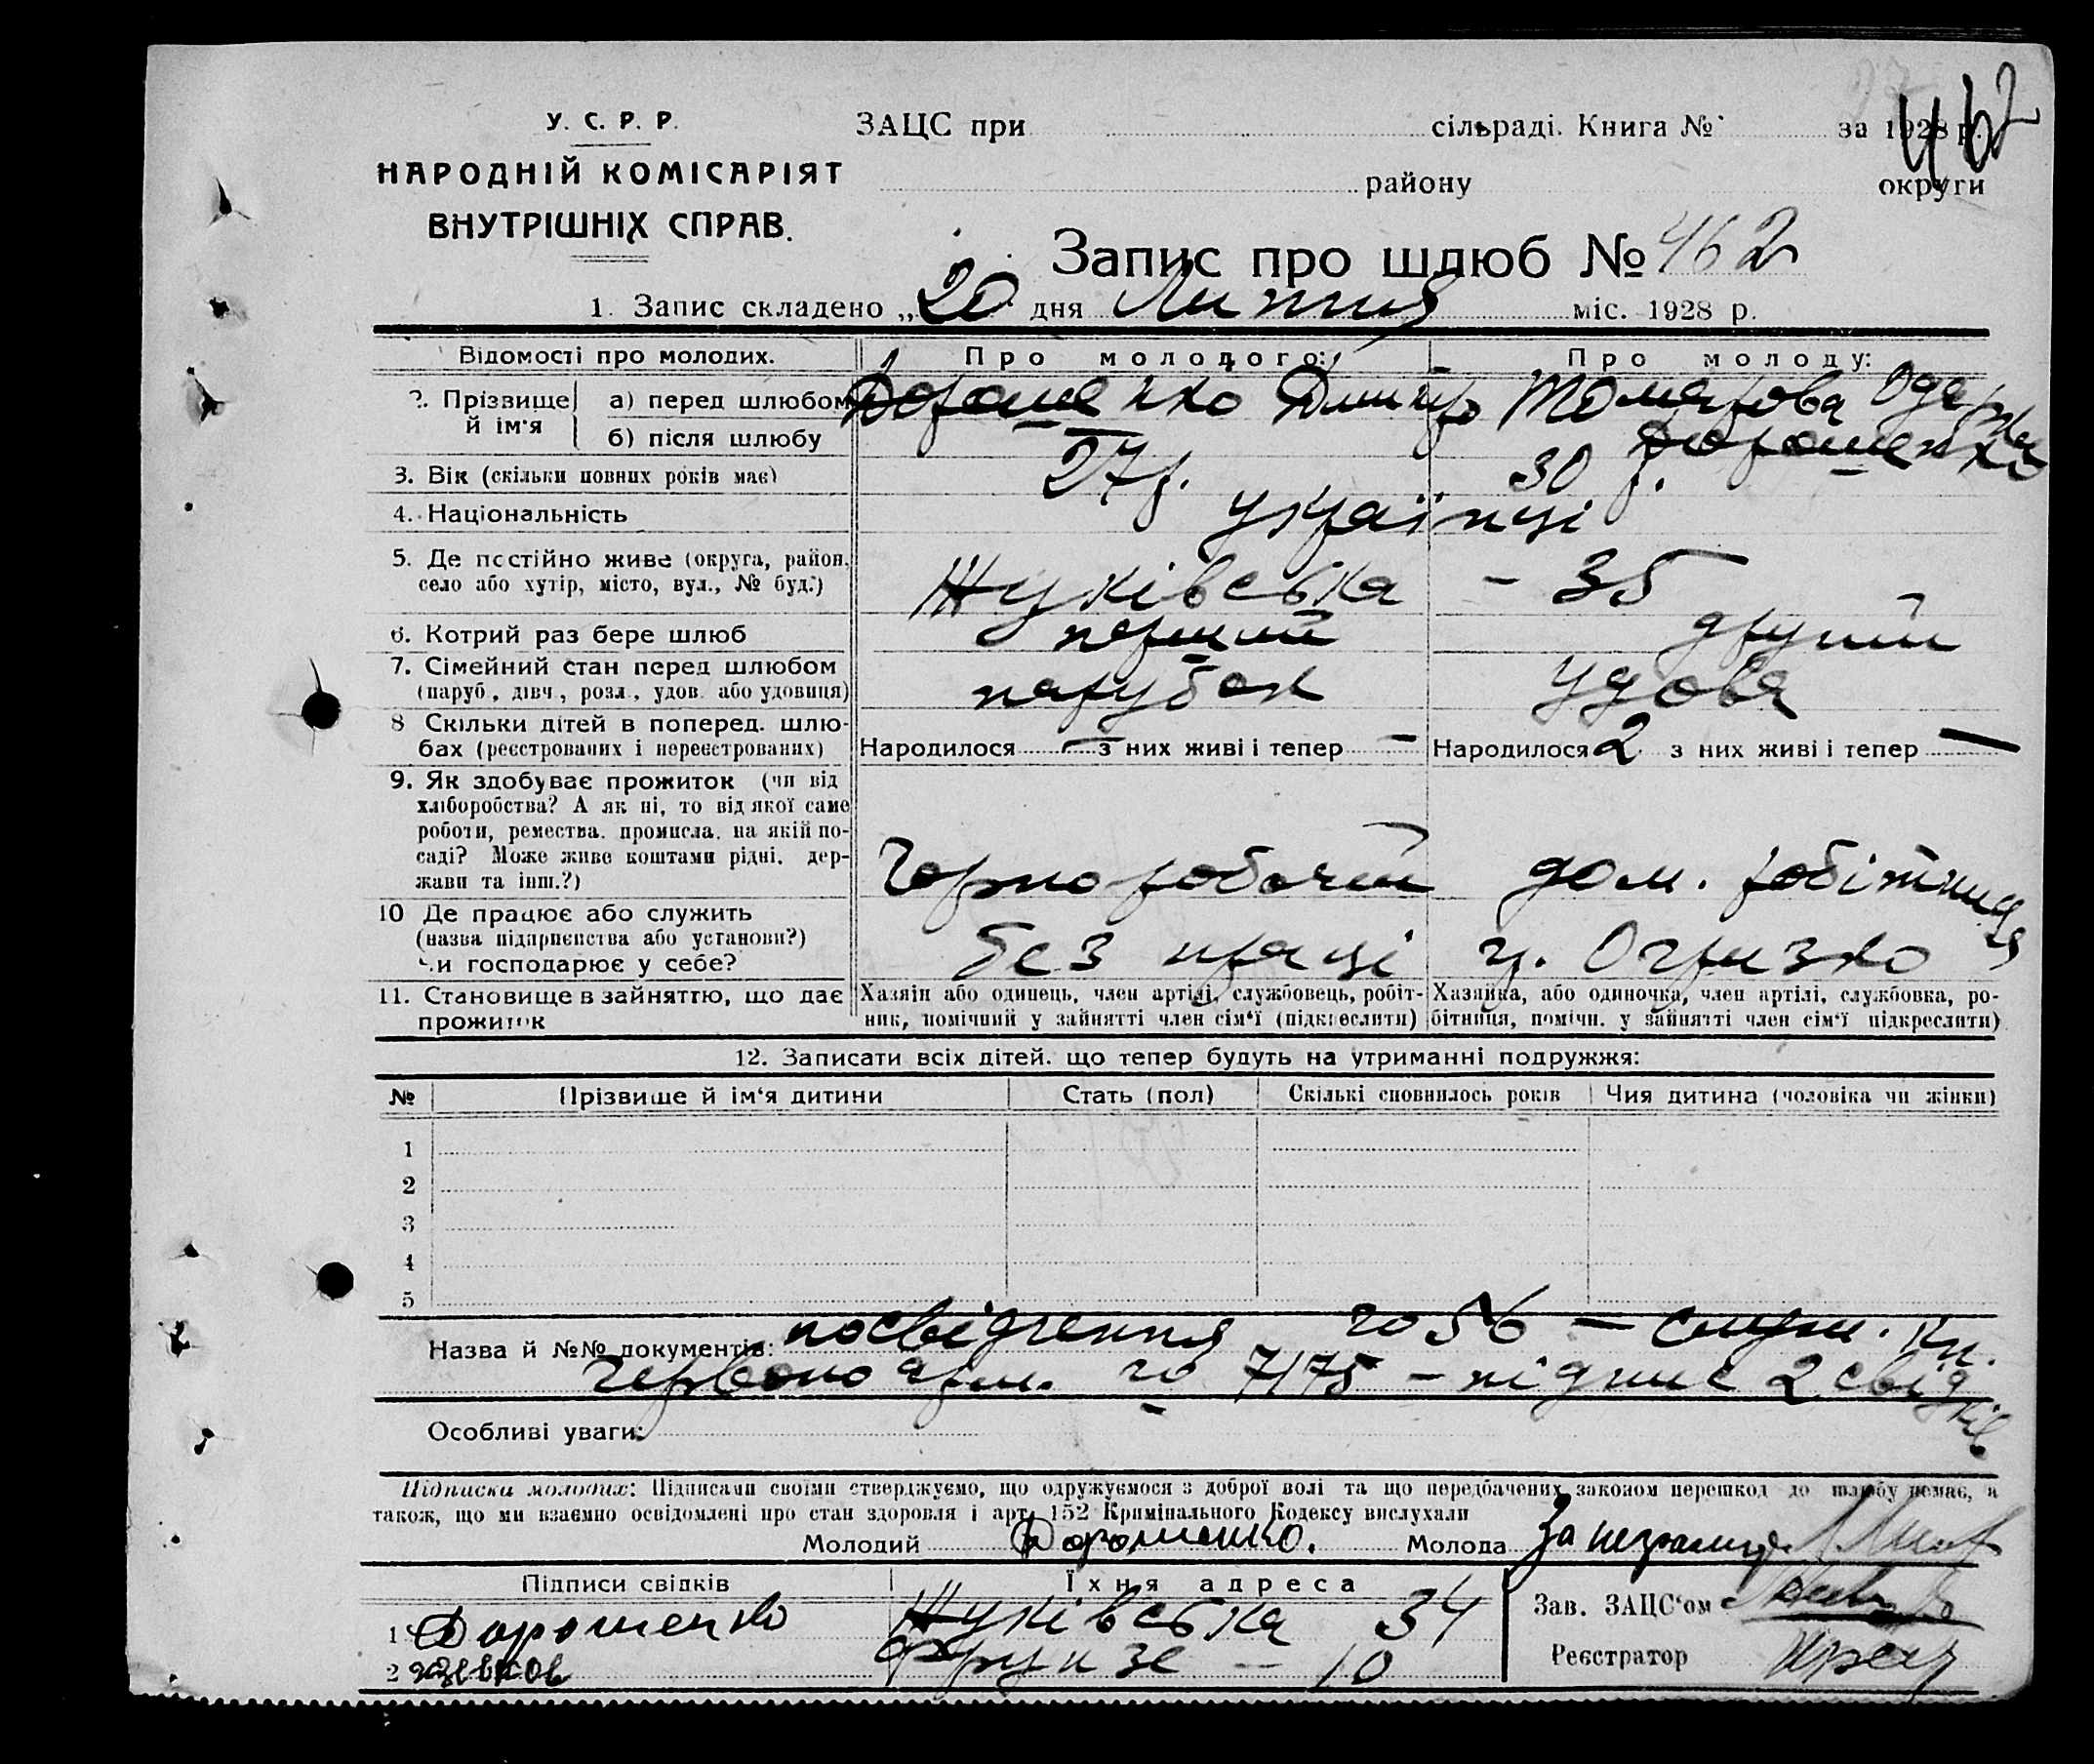 462
У. С. Р. Р.
НАРОДНІЙ КОМІСАРІЯТ
ВНУТРІШНІХ СПРАВ.
ЗАЦС при сільраді. Книга № за 1928 р.
району округи
Запис про шлюб № 462
1. Запис складено „20 дня Липня міс. 1928 р.
Відомості про молодих. Про молодого: Про молоду:
2. Прізвище й ім'я а) перед шлюбом Дорошенко Дмитро Томарова Одарка
б) після шлюбу Дорошенко
3. Вік (скільки повних років має) 27 р. 30 р.
4. Національність українці
5. Де постійно живе (округа, район, Жуківська – 35
село або хутір, місто, вул., № буд.)
6. Котрий раз бере шлюб перший другий
7. Сімейний стан перед шлюбом парубок удова
(паруб., дівч., розл., удов. або удовиця)
8 Скільки дітей в поперед. шлю-
бах (реєстрованих і нереєстрованих) Народилося — з них живі і тепер — Народилося 2 з них живі і тепер —
9. Як здобуває прожиток (чи від
хліборобства? А як ні, то від якої саме
роботи, ремества, промисла, на якій по-
саді? Може живе коштами рідні, дер-
жави та інш.?) Чорноробочий дом. робітниця
10 Де працює або служить
(назва підприємства або установи?) без праці гр. Огризко
Чи господарює у себе?
11. Становище в зайняттю, що дає Хазяїн або одинець, член артілі, службовець, робіт- Хазяйка, або одиночка, член артілі, службовка, ро-
прожиток ник, помічний у зайнятті член сім'ї (підкреслити) бітниця, помічн. у зайнятті член сім'ї підкреслити)
12. Записати всіх дітей, що тепер будуть на утриманні подружжя:
№ Прізвище й ім'я дитини Стать (пол) Скількі сповнилось років Чия дитина (чоловіка чи жінки)
1
2
3
4
5
Назва й №№ документів: посвідчення 56 —
7175 – підпис 2 свідків
Особливі уваги:
Підписки молодих: Підписами своїми стверджуємо, що одружуємося з доброї волі та що передбачених законом перешкод до шлюбу немає, а
також, що ми взаємно освідомлені про стан здоровля і арт. 152 Кримінального Кодексу вислухали
Молодий Дорошенко. Молода За неграмотну
Підписи свідків Їхня адреса
Зав. ЗАЦС'ом
1 Дорошенко Жуківська 34
Реєстратор
2 Фрунзе – 10